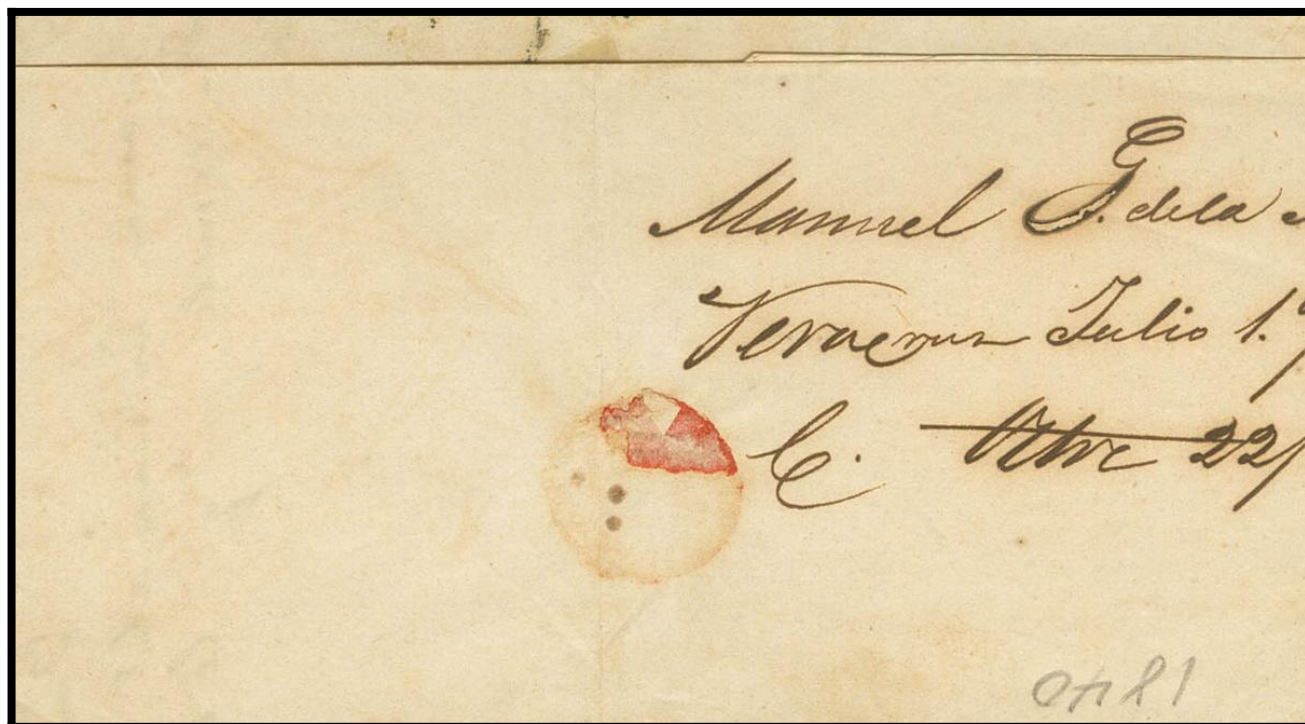 Manuel G. de la
Veracruz Julio 1.
C. 22/
1840